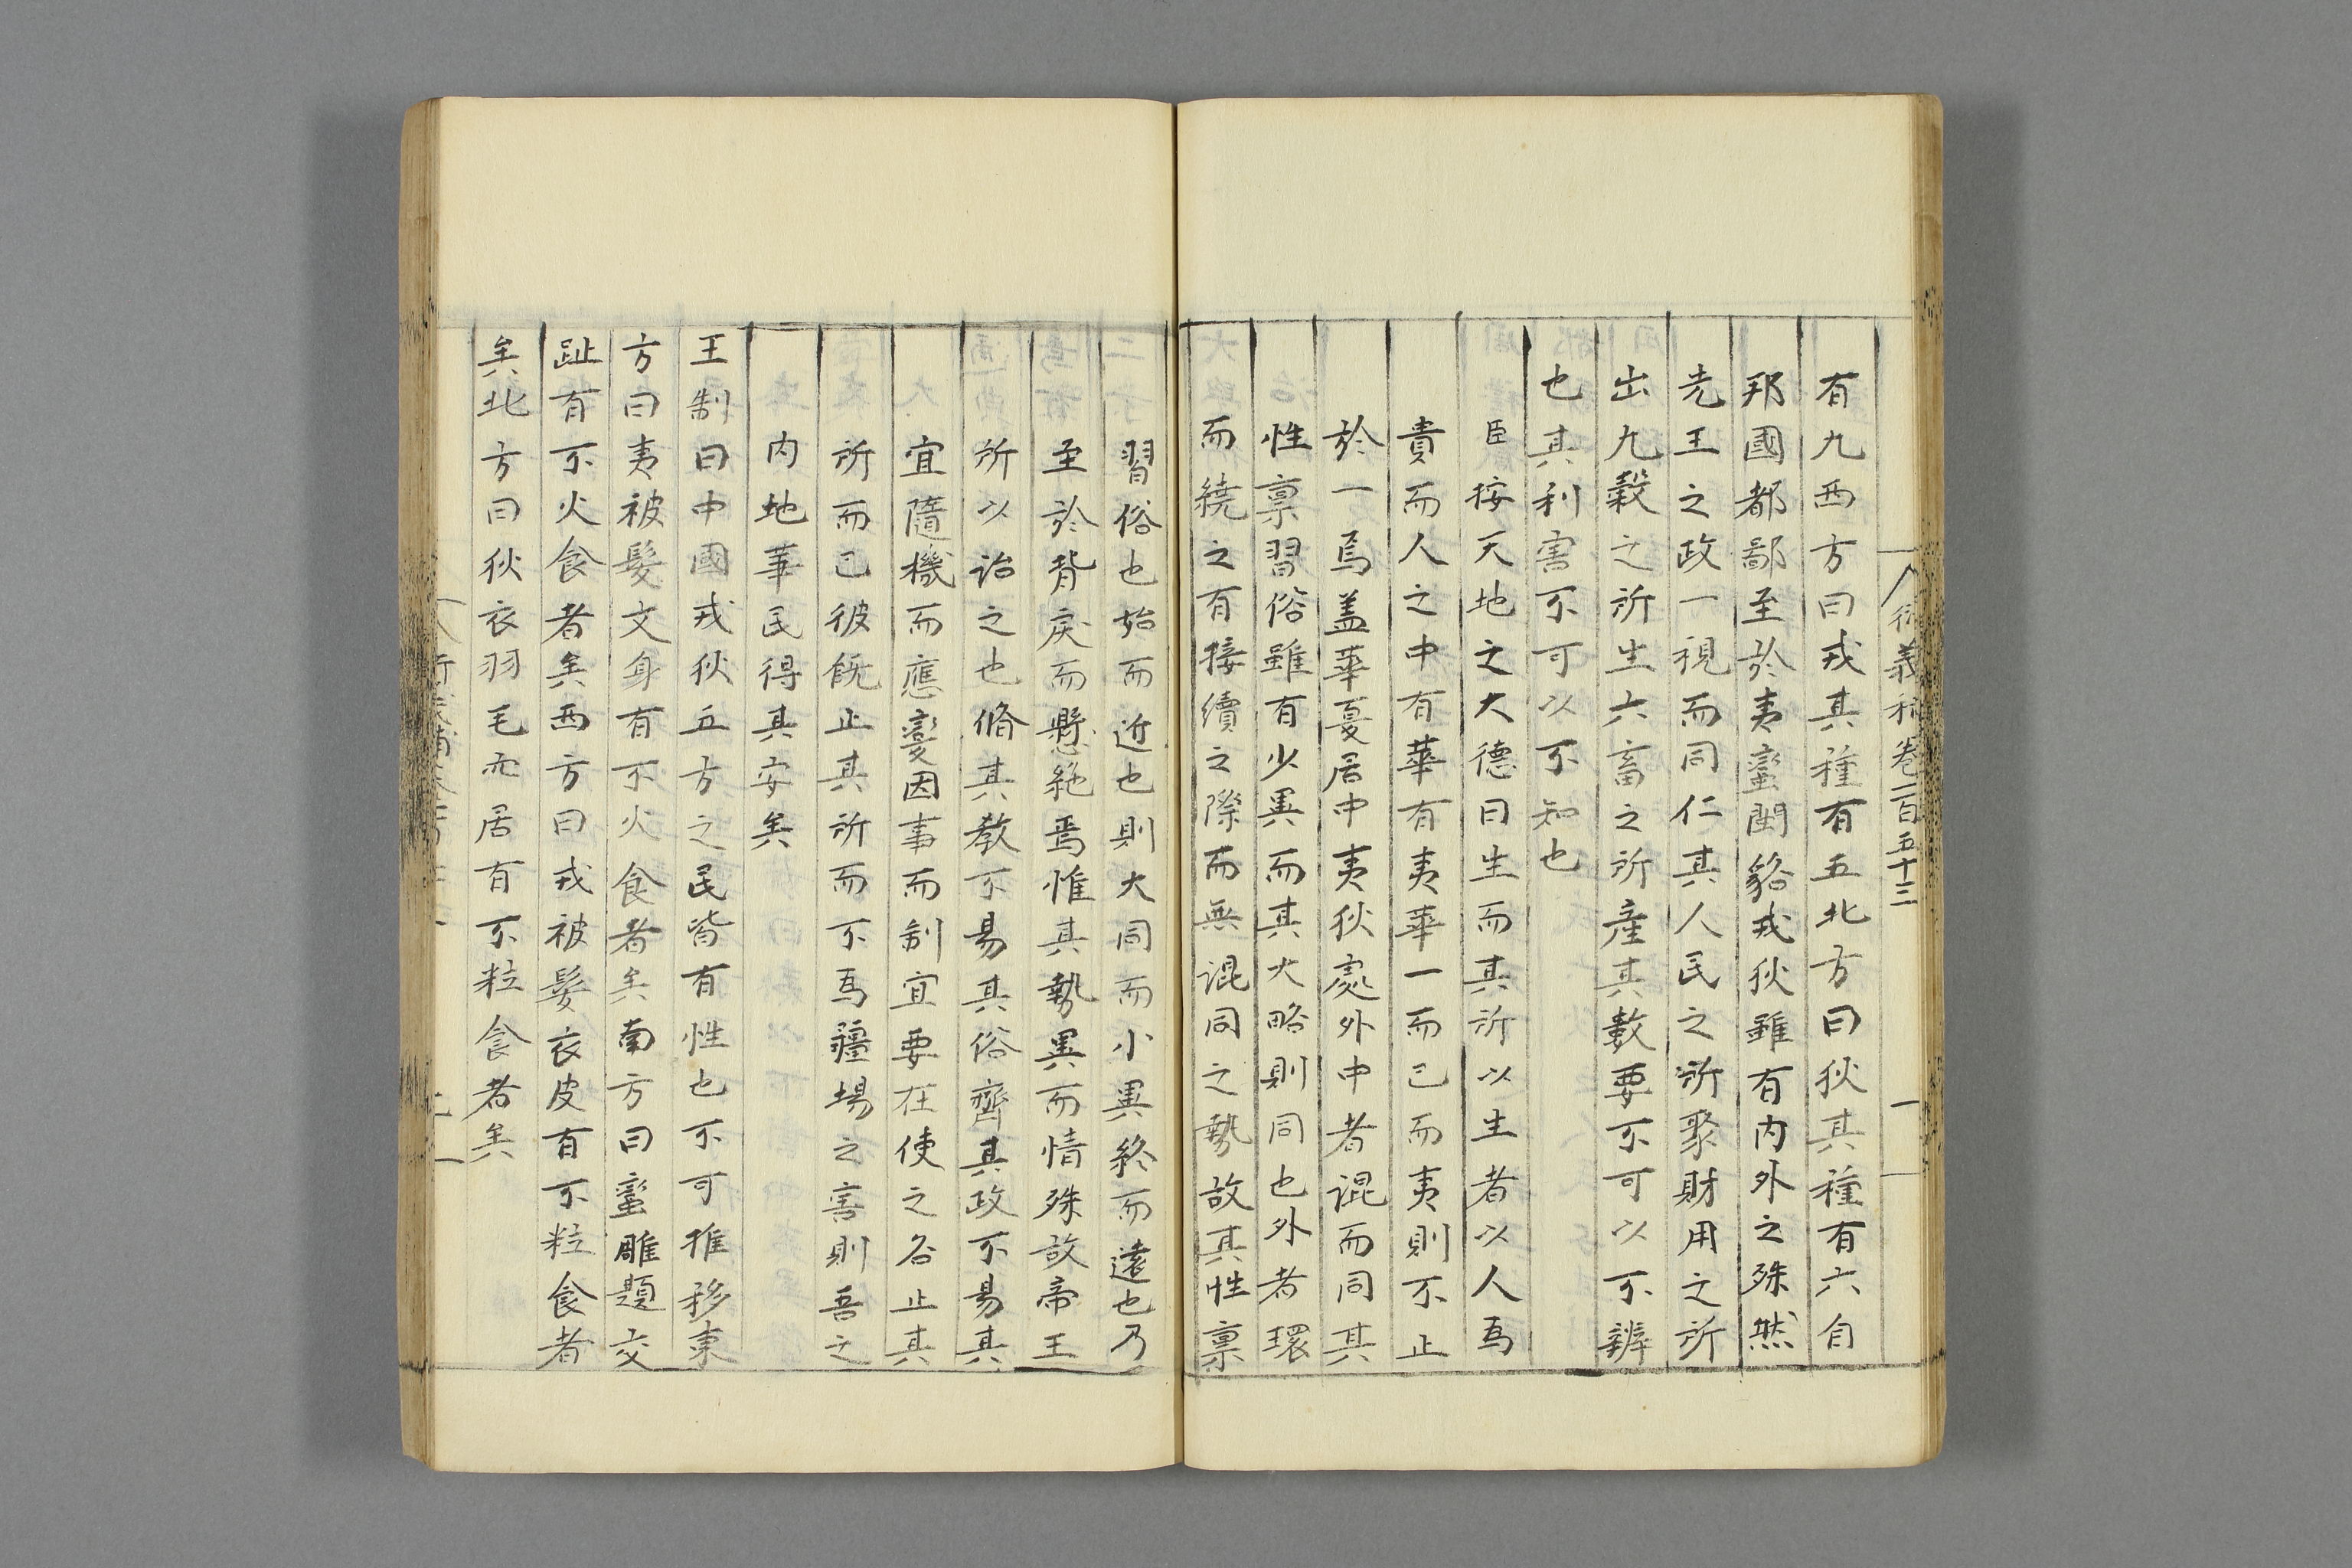 衍義補卷一百五十三 一
有九西方曰戎其種有五北方曰狄其種有六自
邦國都鄙至於夷蠻閩貉戎狄雖有内外之殊然
先王之政一視而同仁其人民之所聚財用之所
出九穀之所生六畜之所產其數要不可以不辨
也其利害不可以不知也
臣按天地之大德曰生而其所以生者以人爲
貴而人之中有華有夷華一而已而夷則不止
於一焉盖華夏居中夷狄處外中者混而同其
性禀習俗雖有少異而其大略則同也外者環
而繞之有接續之際而無混同之勢故其性禀
習俗也始而近也則大同而小異終而遠也乃
至於背戾而懸絶焉惟其勢異而情殊故帝王
所以治之也脩其教不易其俗齊其政不易其
宜隨機而應變因事而制宜要在使之各止其
所而已彼既止其所而不爲疆場之害則吾之
内地華民得其安矣
王制曰中國戎狄五方之民皆有性也不可推移東
方曰夷被髮文身有不火食者矣南方曰蠻雕題交
趾有不火食者矣西方曰戎被髮衣皮有不粒食者
矣北方曰狄衣羽毛穴居有不粒食者矣